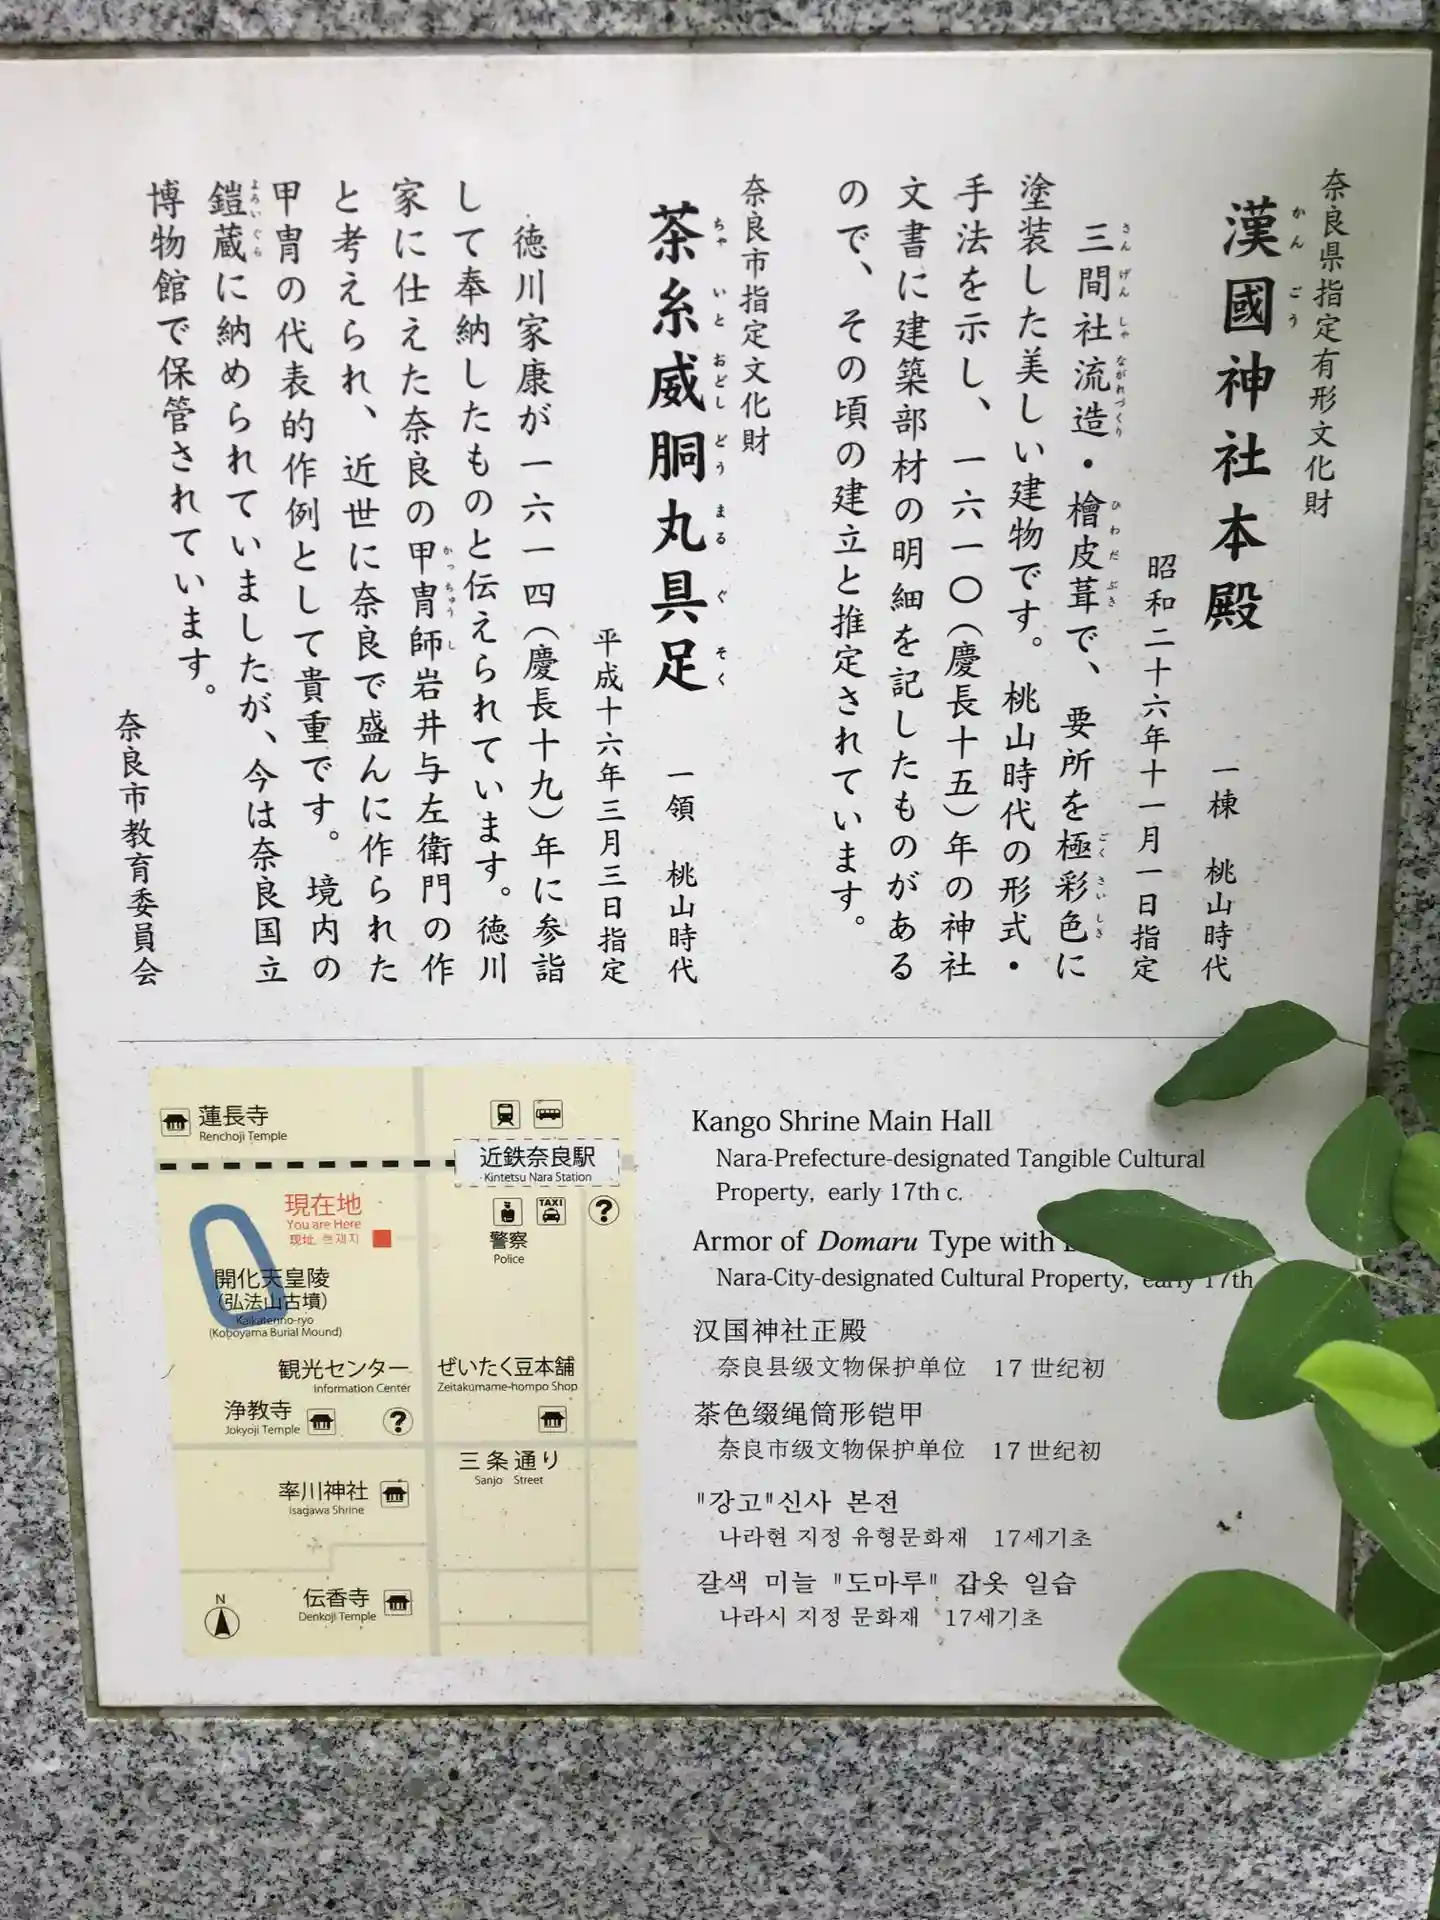 奈良県指定有形文化財
漢國神社本殿 一棟 桃山時代
かん ごう
昭和二十六年十一月一日指定
三間社流造・檜皮葺で、要所を極彩色に
さんげんしゃながれづくり ひわだぶき ごくさいしき
塗装した美しい建物です。桃山時代の形式・
手法を示し、一六一〇(慶長十五)年の神社
文書に建築部材の明細を記したものがある
ので、その頃の建立と推定されています。
奈良市指定文化財
茶糸威胴丸具足 一領 桃山時代
ちゃ いと おどし どう まる ぐ そく
平成十六年三月三日指定
徳川家康が一六一四(慶長十九)年に参詣
して奉納したものと伝えられています。徳川
家に仕えた奈良の甲冑師岩井与左衛門の作
かっちゅうし
と考えられ、近世に奈良で盛んに作られた
甲冑の代表的作例として貴重です。境内の
鎧蔵に納められていましたが、今は奈良国立
よろいぐら
博物館で保管されています。
奈良市教育委員会
蓮長寺
Renchoji Temple
近鉄奈良駅
Kintetsu Nara Station
現在地
You are Here
现址. 현재지
TAXI
?
警察
Police
開化天皇陵
(弘法山古墳)
Kaikatenno-ryo
(Koboyama Burial Mound)
観光センター
Information Center
ぜいたく豆本舗
Zeitakumame-hompo Shop
浄教寺
Jokyoji Temple
?
三条通り
Sanjo Street
率川神社
Isagawa Shrine
伝香寺
Denkoji Temple
N
Kango Shrine Main Hall
Nara-Prefecture-designated Tangible Cultural
Property, early 17th c.
Armor of Domaru Type with
Nara-City-designated Cultural Property, early 17th
汉国神社正殿
奈良县级文物保护单位 17世纪初
茶色缀绳筒形铠甲
奈良市级文物保护单位 17世纪初
"강고"신사 본전
나라현 지정 유형문화재 17세기초
갈색 미늘 "도마루" 갑옷 일습
나라시 지정 문화재 17세기초